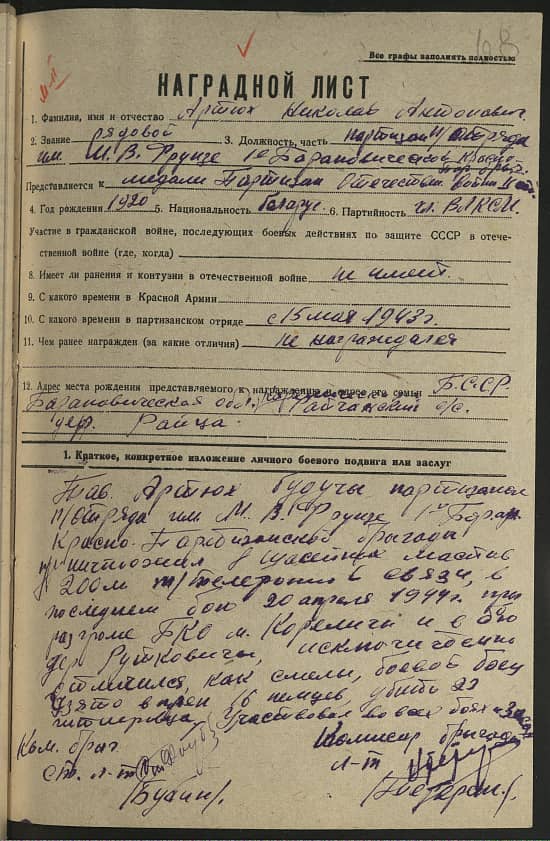 168
Все графы заполнять полностью
НАГРАДНОЙ ЛИСТ
1. Фамилия, имя и отчество Артюх Николай Антонович
2. Звание рядовой 3. Должность, часть партизан п/отряда
им. М.В. Фрунзе 1й Барановической Красно-
пар. бриг.
Представляется к медали Партизан Отечествен. войны II ст.
4. Год рождения 1920 5. Национальность беларус 6. Партийность чл. ВЛКСМ
Участие в гражданской войне, последующих боевых действиях по защите СССР в отече-
ственной войне (где, когда)
8. Имеет ли ранения и контузии в отечественной войне не имеет.
9. С какого времени в Красной Армии
10. С какого времени в партизанском отряде с 15 мая 1943 г.
11. Чем ранее награжден (за какие отличия) не награждался
12. Адрес места рождения представляемого к награждению и адрес его семьи Б.С.С.Р.
Барановическая обл. Райчанский с/с.
дер. Райца.
1. Краткое, конкретное изложение личного боевого подвига или заслуг
Тов. Артюх будучы партизаном
п/отряда им М.В. Фрунзе 1й Баран.
Красно-Партизанской брыгады
уничтожил в шасейных
200 м т/телефонной связи, в
последнем бою 20 апреля 1944 г. при
разгроме БКО м. Кореличи и в бою
дер Рутковичы, исключительно
отличился, как смелы, боевой боец
взято в плен 16 немцев, убито 22
гитлеровца. Участвовал во всех боях
Ком. брыг. Комисар брыгады
ст. л-т л-т
/Бубин/.